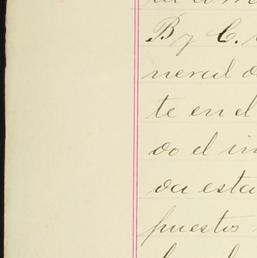 B y C.
neral
te en el
do el in
da esta
puestos